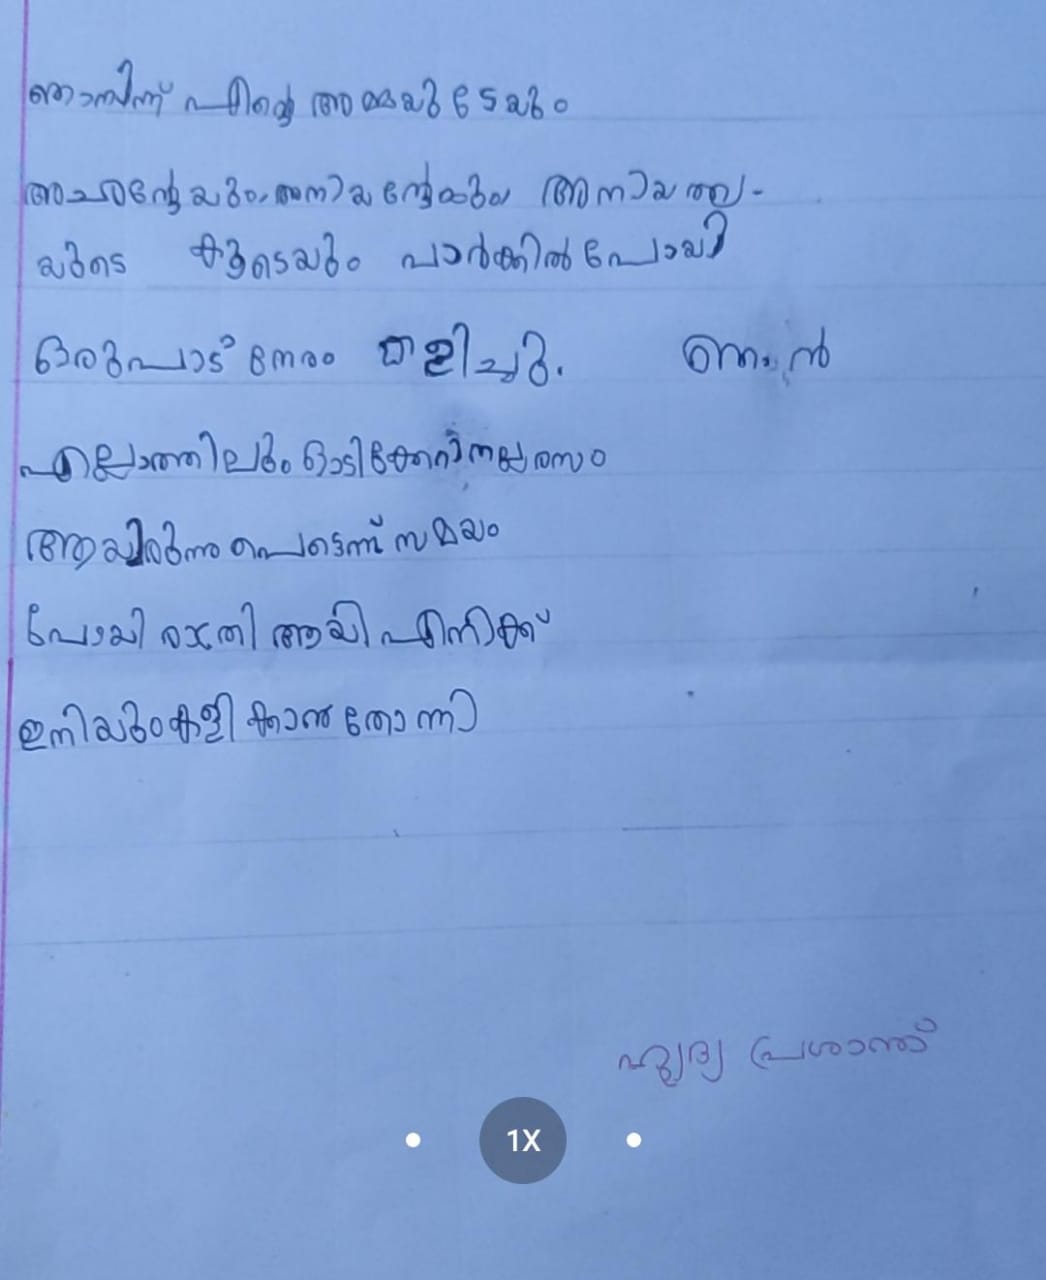 ഞാനിന്ന് എന്റെ അമ്മയുടേയും
അച്ഛന്റേയും, അനിയന്റേയും അനിയത്തി-
യുടെ കൂടെയും പാർക്കിൽ പോയി
ഒരുപാട് നേരം കളിച്ചു. ഞാൻ
എല്ലാത്തിലും ഓടിക്കേറി നല്ല രസം
ആയിരുന്നു പെട്ടെന്ന് സമയം
പോയി രാത്രി ആയി എനിക്ക്
ഇനിയും കളിക്കാൻ തോന്നി
ഹൃദ്യ പ്രശാന്ത്
1X